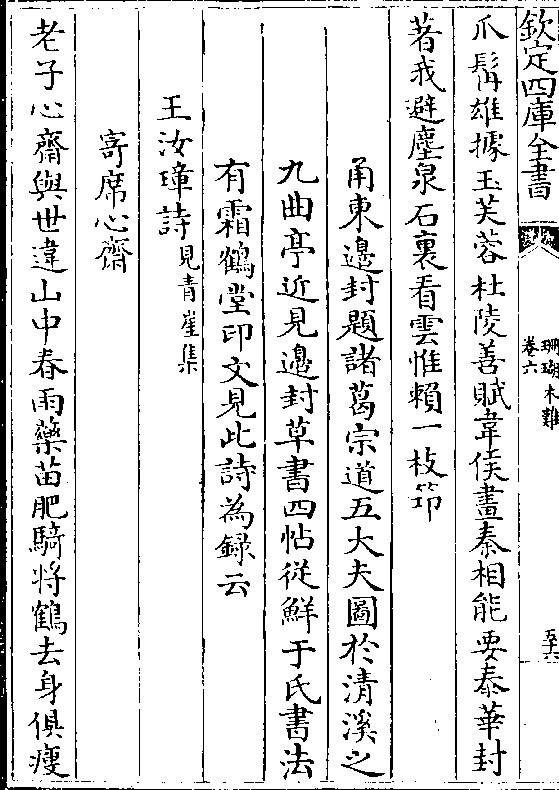 欽定四庫全書
珊瑚木難
卷六
五十六
爪髯雄據玉芙蓉杜陵善賦韋侯畫秦相能要泰華封
著我避塵泉石裏看雲惟賴一枝笻
甬東邊封題諸葛宗道五大夫圖於清溪之
九曲亭近見邊封草書四帖從鮮于氏書法
有霜鶴堂印文見此詩為録云
王汝璋詩見青崖集
寄席心齋
老子心齋與世違山中春雨藥苗肥騎將鶴去身俱瘦